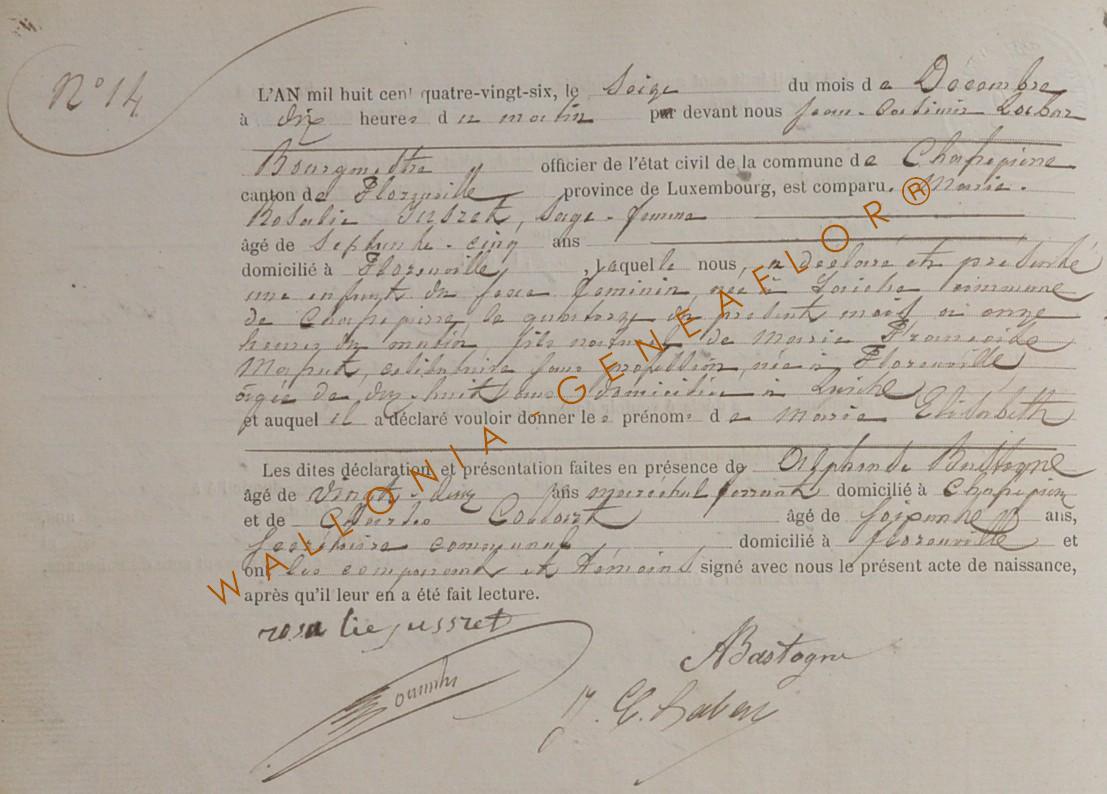 N° 14
L'AN mil huit cent quatre-vingt-six, le Seize du mois de Decembre
à dix heures du matin par devant nous Jean-Casimir
Bourgmestre officier de l'état civil de la commune de Chassepierre
canton de Florenville province de Luxembourg, est comparu. Marie.
Rosalie Jusseret, Sage-femme
âgé de Septante-cinq ans
domicilié à Florenville, laquelle nous a déclaré et présenté
une enfant du sexe féminin, née à Laiche commune
de Chassepierre le quatorze du présent mois à onze
heures du matin fils naturel de Marie Françoise
célibataire sans profession, née à Florenville
âgée de dix-huit ans domiciliée à Laiche
et auquel il a déclaré vouloir donner les prénoms de Marie Elisabeth
Les dites déclaration et présentation faites en présence de Alphonse Bastogne
âgé de vingt-deux ans maréchal ferrant domicilié à Chassepierre
et de Charles âgé de soixante ans,
Secrétaire communal domicilié à Florenville et
ont les comparants et témoins signé avec nous le présent acte de naissance,
après qu'il leur en a été fait lecture.
rosalie jusseret
ABastogne
J. C.
WALLONIA - GENEAFLOR®